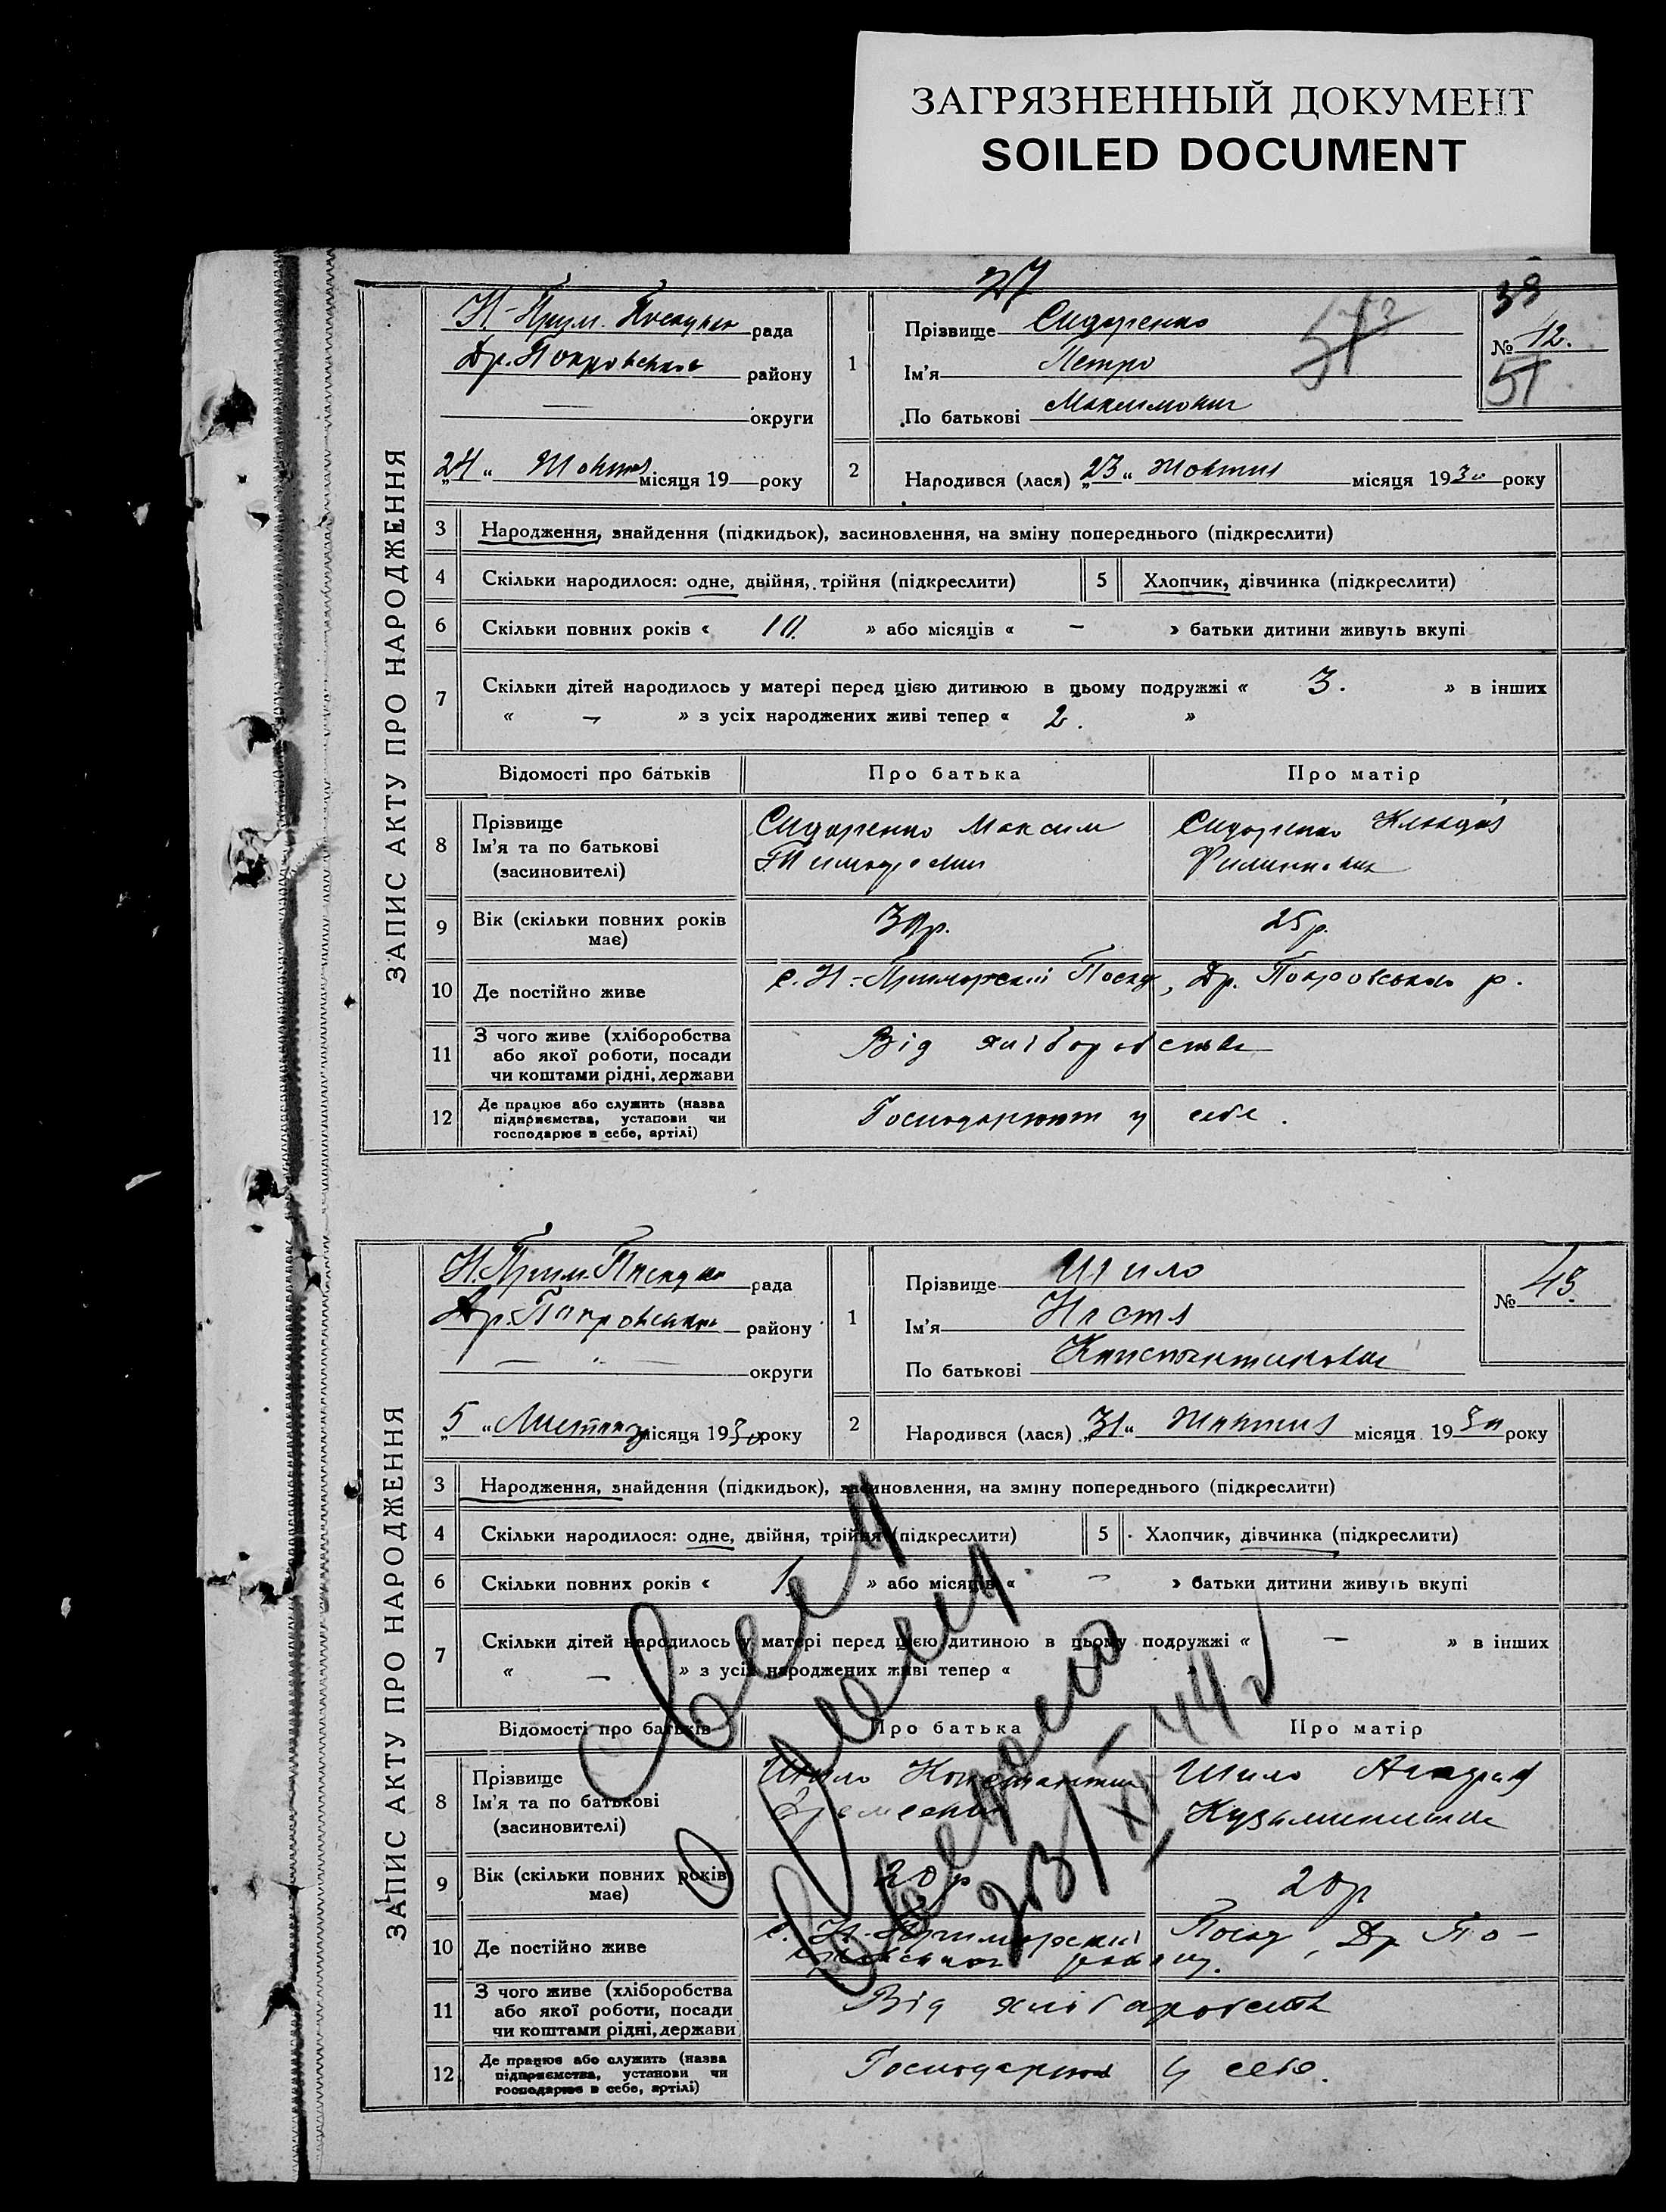 ЗАГРЯЗНЕННЫЙ ДОКУМЕНТ
SOILED DOCUMENT
27
39
ЗАПИС АКТУ ПРО НАРОДЖЕННЯ
Н-Прим. Посадька рада
Др. Покровського району
— округи
„24“ Жовтня місяця 19 — року
1
Прізвище Сидоренко
Ім'я Петро
По батькові Максимович
№ 12.
51
2
Народився (лася) „23“ Жовтня місяця 1930 року
3 Народження, знайдення (підкидьок), засиновлення, на зміну попереднього (підкреслити)
4 Скільки народилося: одне, двійня, трійня (підкреслити) 5 Хлопчик, дівчинка (підкреслити)
6 Скільки повних років « » або місяців « — » батьки дитини живуть вкупі
7 Скільки дітей народилось у матері перед цією дитиною в цьому подружжі « 3. » в інших
« — » з усіх народжених живі тепер « 2. »
Відомості про батьків Про батька Про матір
8 Прізвище
Ім'я та по батькові
(засиновителі)
Сидоренко Максим
Сидоренко
9 Вік (скільки повних років
має)
25 р.
10 Де постійно живе с. Н-Приморский Посад, Др. Покровського р.
11 З чого живе (хліборобства
або якої роботи, посади
чи коштами рідні, держави
Від хліборобства
12 Де працює або служить (назва
підприємства, установи чи
господарює в себе, артілі)
Господарюют у себе.
ЗАПИС АКТУ ПРО НАРОДЖЕННЯ
Н. Прим. Посадька рада
Др. Покровського району
— „ — округи
„5“ Листопад місяця 1930 року
1
Прізвище Шило
Ім'я Настя
По батькові Константиновна
№
2
Народився (лася) „31“ Жовтня місяця 1930 року
3 Народження, знайдення (підкидьок), засиновлення, на зміну попереднього (підкреслити)
4 Скільки народилося: одне, двійня, трійня (підкреслити) 5 Хлопчик, дівчинка (підкреслити)
6 Скільки повних років « 1 » або місяців « — » батьки дитини живуть вкупі
7 Скільки дітей народилось у матері перед цією дитиною в цьому подружжі « — » в інших
« — » з усіх народжених живі тепер « »
Відомості про батьків Про батька Про матір
8 Прізвище
Ім'я та по батькові
(засиновителі)
Шило Константин
Шило
Кузьминична
9 Вік (скільки повних років
має)
20 р
20 р
10 Де постійно живе с. Н-Приморский Посад, Др. По-
кровського району.
11 З чого живе (хліборобства
або якої роботи, посади
чи коштами рідні, держави
Від хліборобства
12 Де працює або служить (назва
підприємства, установи чи
господарює в себе, артілі)
Господарюют у себе.